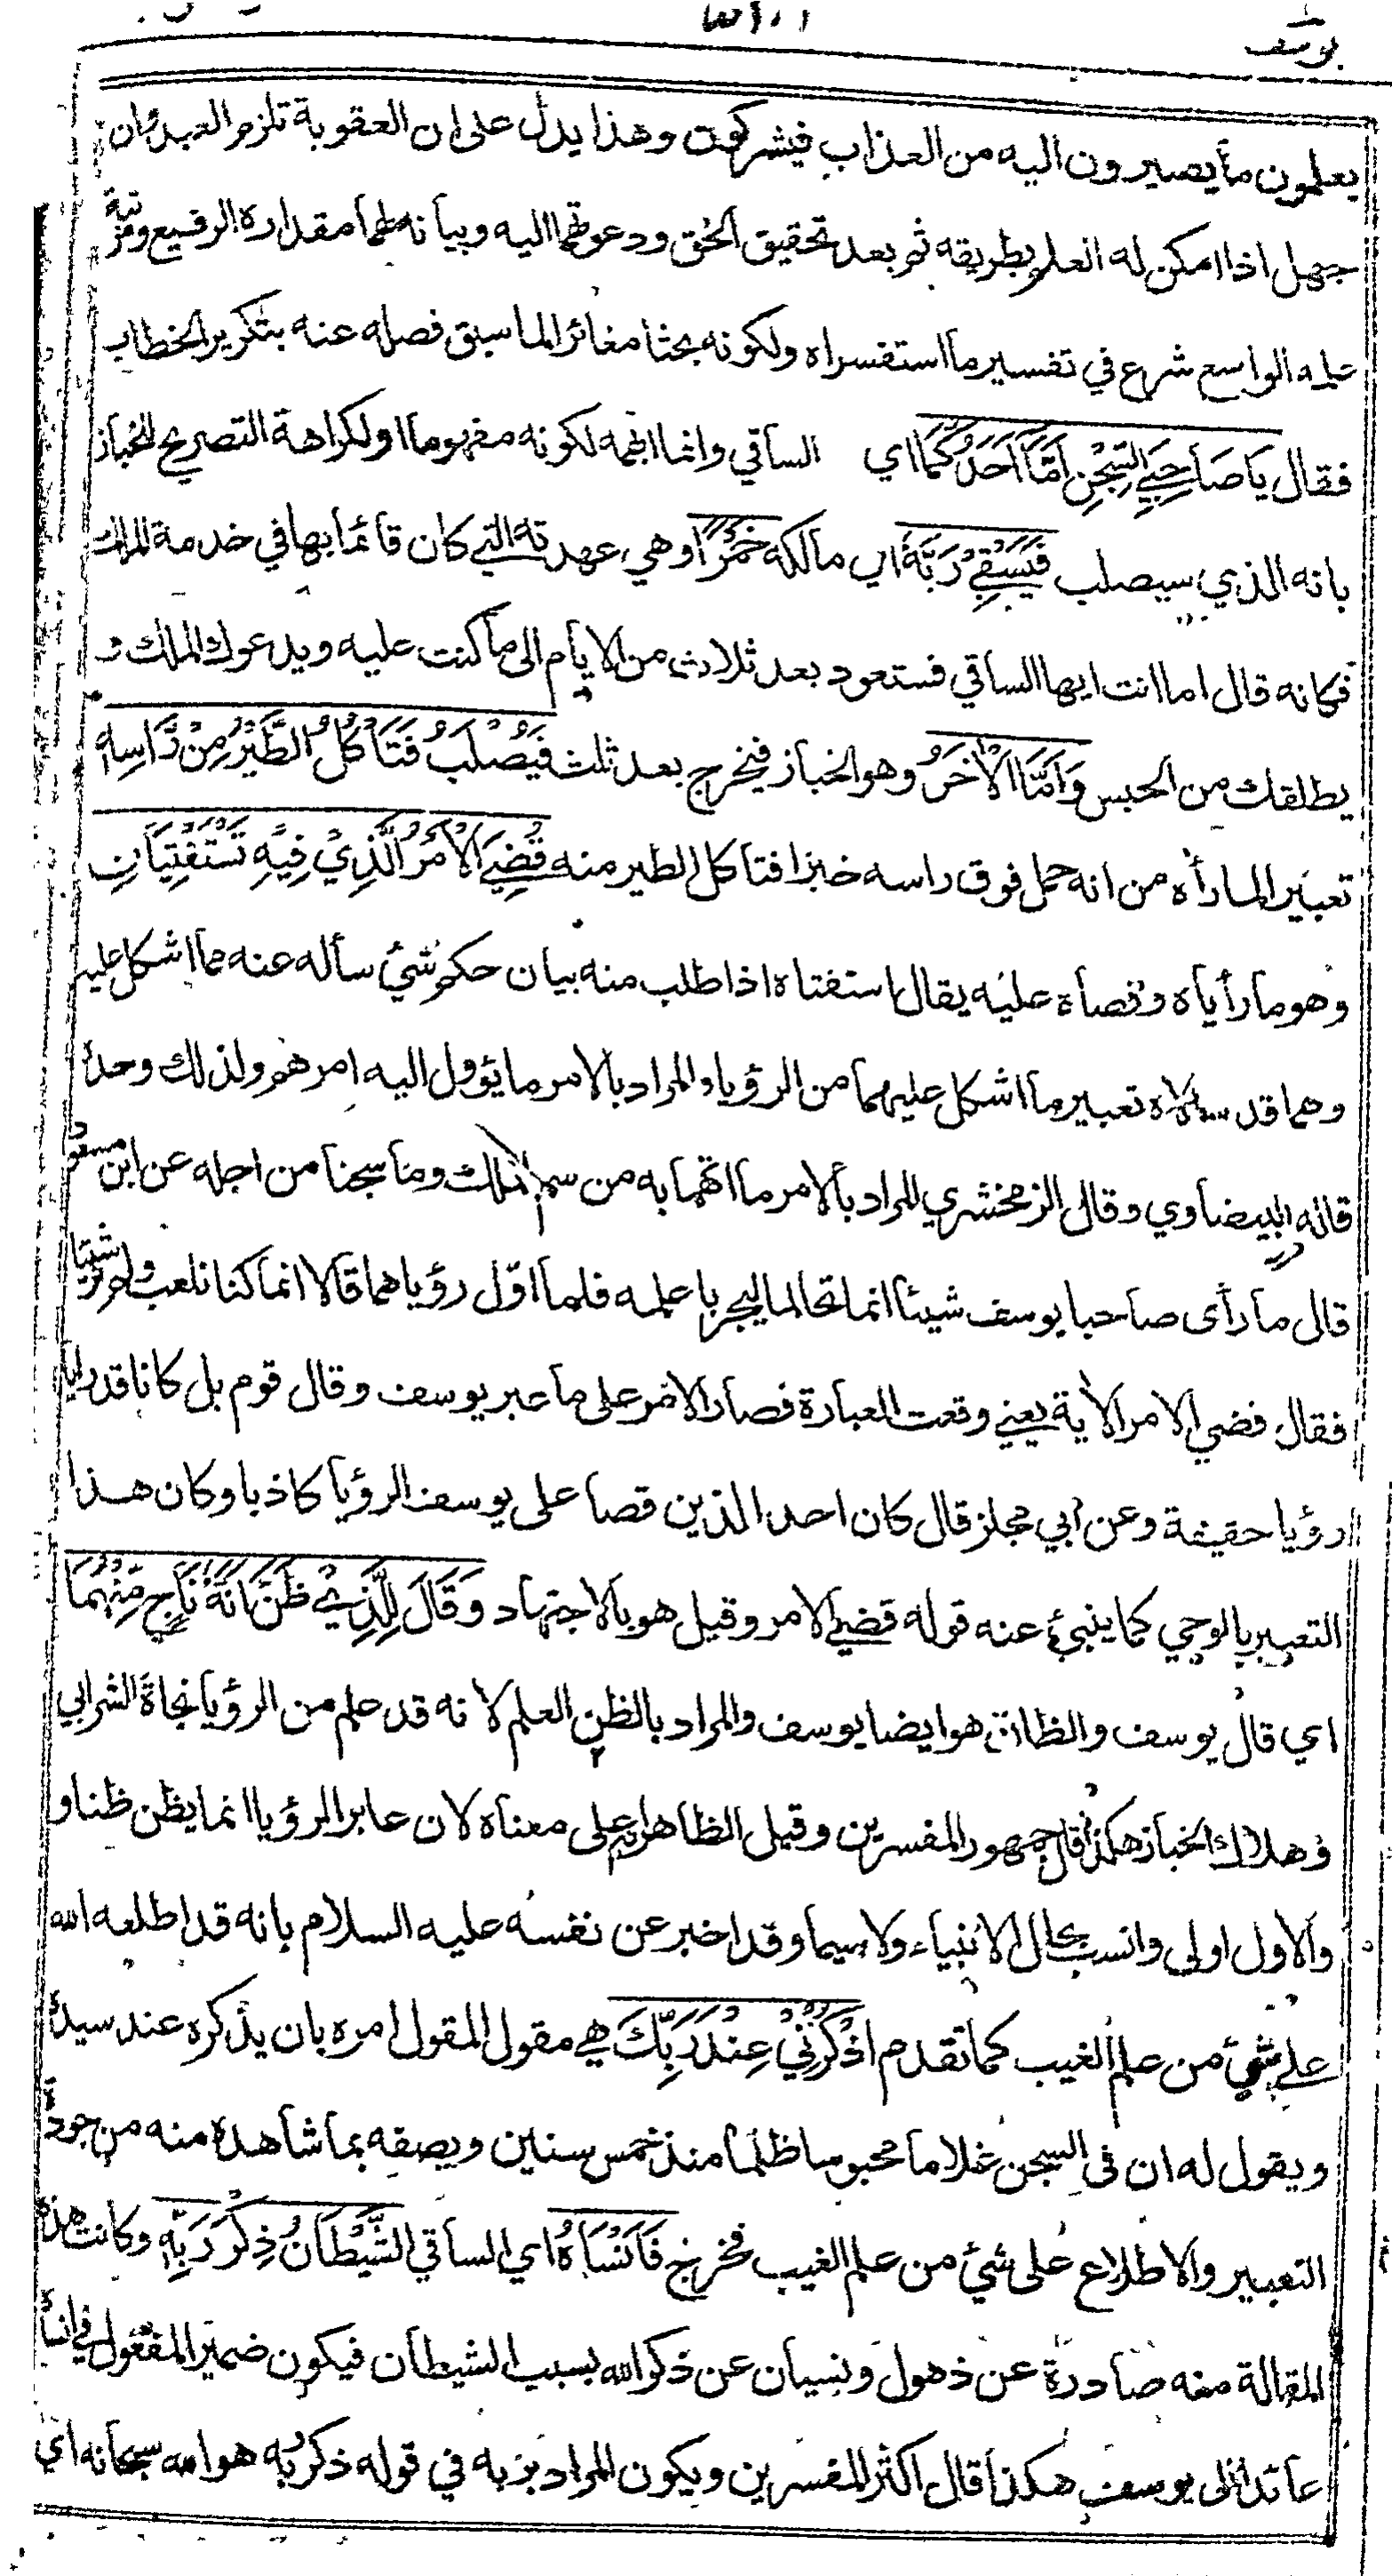 يوسف
يعلمون ما يصيرون اليه من العذاب فيشركون وهذا يدل على ان العقوبة تلزم العبد وان
جهل اذا امكن له العلم بطريقه ثم بعد تحقيق الحق ودعوتهما اليه وبيانه لهما مقداره الرفيع ومرتبة
علمه الواسع شرع في تفسير ما استفسراه ولكونه بحثا مغائرا لما سبق فصله عنه بتكرير الخطاب
فقال يَا صَاحِبَيِ السِّجْنِ اَمَّا اَحَدُكُمَا اي الساقي وانما ابهمه لكونه مفهوما او لكراهة التصريح للخباز
بانه الذي سيصلب فَيَسْقِيْ رَبَّهٗ اي مالكه خَمْرًا وهي عهدته التي كان قائما بها في خدمة الملك
فكانه قال اما انت ايها الساقي فستعود بعد ثلاث من الايام الى ما كنت عليه ويدعوك الملك و
يطلقك من الحبس وَاَمَّا الْاٰخَرُ وهو الخباز فيخرج بعد ثلث فَيُصْلَبُ فَتَاْكُلُ الطَّيْرُ مِنْ رَّاسِهٖ
تعبير لما رأه من انه حمل فوق راسه خبزا فتاكل الطير منه قُضِيَ الْاَمْرُ الَّذِيْ فِيْهِ تَسْتَفْتِيَانِ
وهو ما رأياه وقصاه عليه يقال استفتاه اذا طلب منه بيان حكم شيء سأله عنه مما اشكل عليه
وهما قد سالاه تعبير ما اشكل عليهما من الرؤيا والمراد بالامر ما يؤول اليه امرهم ولذلك وحده
قاله البيضاوي وقال الزمخشري المراد بالامر ما اتهما به من سم الملك وما سجنا من اجله عن ابن مسعود
قال ما رأى صاحبا يوسف شيئا انما تحالما ليجربا علمه فلما اول رؤياهما قالا انما كنا نلعب ولم نر شيئا
فقال قضي الامر الأية يعني وقعت العبارة فصار الامر على ما عبر يوسف وقال قوم بل كانا قد رايا
رؤيا حقيقة وعن ابي مجلز قال كان احد الذين قصا على يوسف الرؤيا كاذبا وكان هذا
التعبير بالوحي كما ينبئ عنه قوله قضي الامر وقيل هو بالاجتهاد وَقَالَ لِلَّذِيْ ظَنَّ اَنَّهٗ نَاجٍ مِّنْهُمَا
اي قال يوسف والظان هو ايضا يوسف والمراد بالظن العلم لانه قد علم من الرؤيا نجاة الشرابي
وهلاك الخباز هكذا قال جمهور المفسرين وقيل الظاهر انه على معناه لان عابر الرؤيا انما يظن ظنا و
والاول اولى وانسب بحال الانبياء ولا سيما وقد اخبر عن نفسه عليه السلام بانه قد اطلعه الله
على شيء من علم الغيب كما تقدم اذْكُرْنِيْ عِنْدَ رَبِّكَ هي مقول المقول امره بان يذكره عند سيده
ويقول له ان في السجن غلاما محبوسا ظلما منذ خمس سنين ويصفه بما شاهده منه من جودة
التعبير والاطلاع على شيء من علم الغيب فخرج فَاَنْسَاهُ اي الساقي الشَّيْطَانُ ذِكْرَ رَبِّهٖ وكانت هذه
المقالة منه صادرة عن ذهول ونسيان عن ذكر الله بسبب الشيطان فيكون ضمير المفعول في انساه
عائدا الى يوسف هكذا قال اكثر المفسرين ويكون المراد بربه في قوله ذكر ربه هو الله سبحانه اي